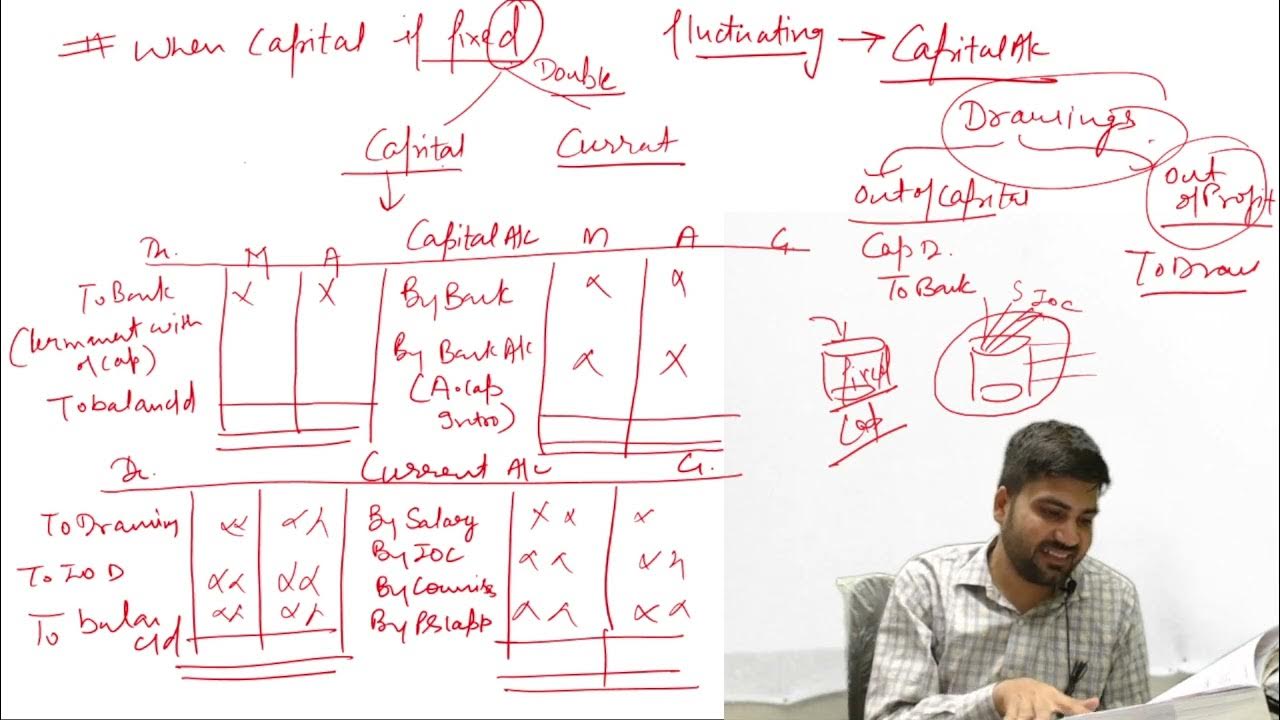 # When Capital if fixed
fluctuating → Capital A/c
Double
Drawings
Capital
Current
Out of Capital
Out of Profit
Cap D.
To Bank
To Draw
S IOC
fixed
Cap
Dr. M A Capital A/c M A Cr
To Bank X X By Bank x x
(Permanent with
of Cap)
By Bank A/c x X
(A. Cap
Intro)
To balance c/d
Dr. Current A/c Cr.
To Drawing xx xx By Salary xx x
To IOD xx xx By IOC xx xx
By Commiss
To balan c/d xx xx By P&L App xx xx